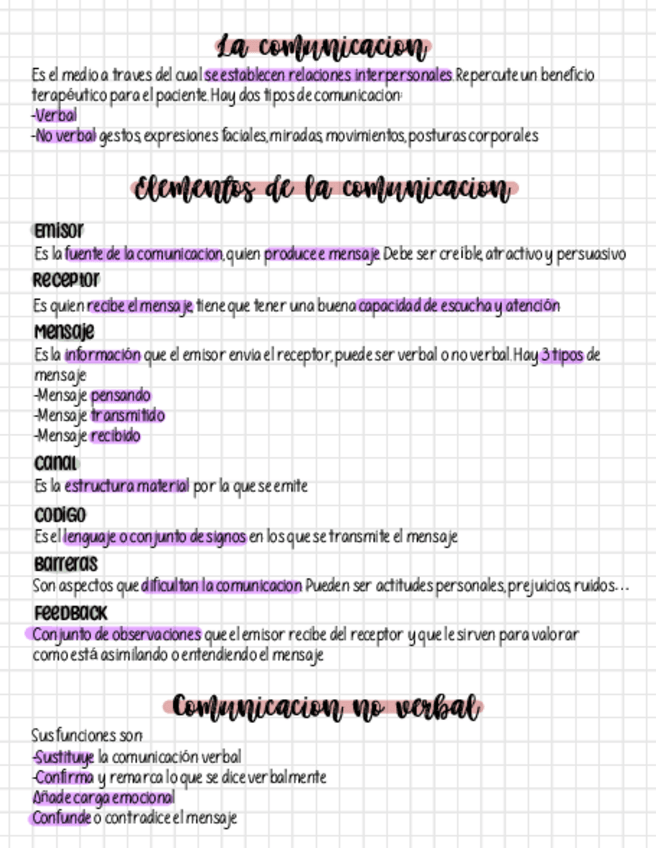 La comunicacion
Es el medio a traves del cual se establecen relaciones interpersonales. Repercute un beneficio
terapéutico para el paciente. Hay dos tipos de comunicacion:
-Verbal
-No verbal: gestos, expresiones faciales, miradas, movimientos, posturas corporales
Elementos de la comunicacion
Emisor
Es la fuente de la comunicacion, quien produce e mensaje. Debe ser creíble, atractivo y persuasivo
Receptor
Es quien recibe el mensaje, tiene que tener una buena capacidad de escucha y atención
Mensaje
Es la información que el emisor envia el receptor, puede ser verbal o no verbal. Hay 3 tipos de
mensaje
-Mensaje pensando
-Mensaje transmitido
-Mensaje recibido
Canal
Es la estructura material por la que se emite
Codigo
Es el lenguaje o conjunto de signos en los que se transmite el mensaje
Barreras
Son aspectos que dificultan la comunicacion. Pueden ser actitudes personales, prejuicios, ruidos...
Feedback
Conjunto de observaciones que el emisor recibe del receptor y que le sirven para valorar
como está asimilando o entendiendo el mensaje
Comunicacion no verbal
Sus funciones son:
-Sustituye la comunicación verbal
-Confirma y remarca lo que se dice verbalmente
Añade carga emocional
Confunde o contradice el mensaje